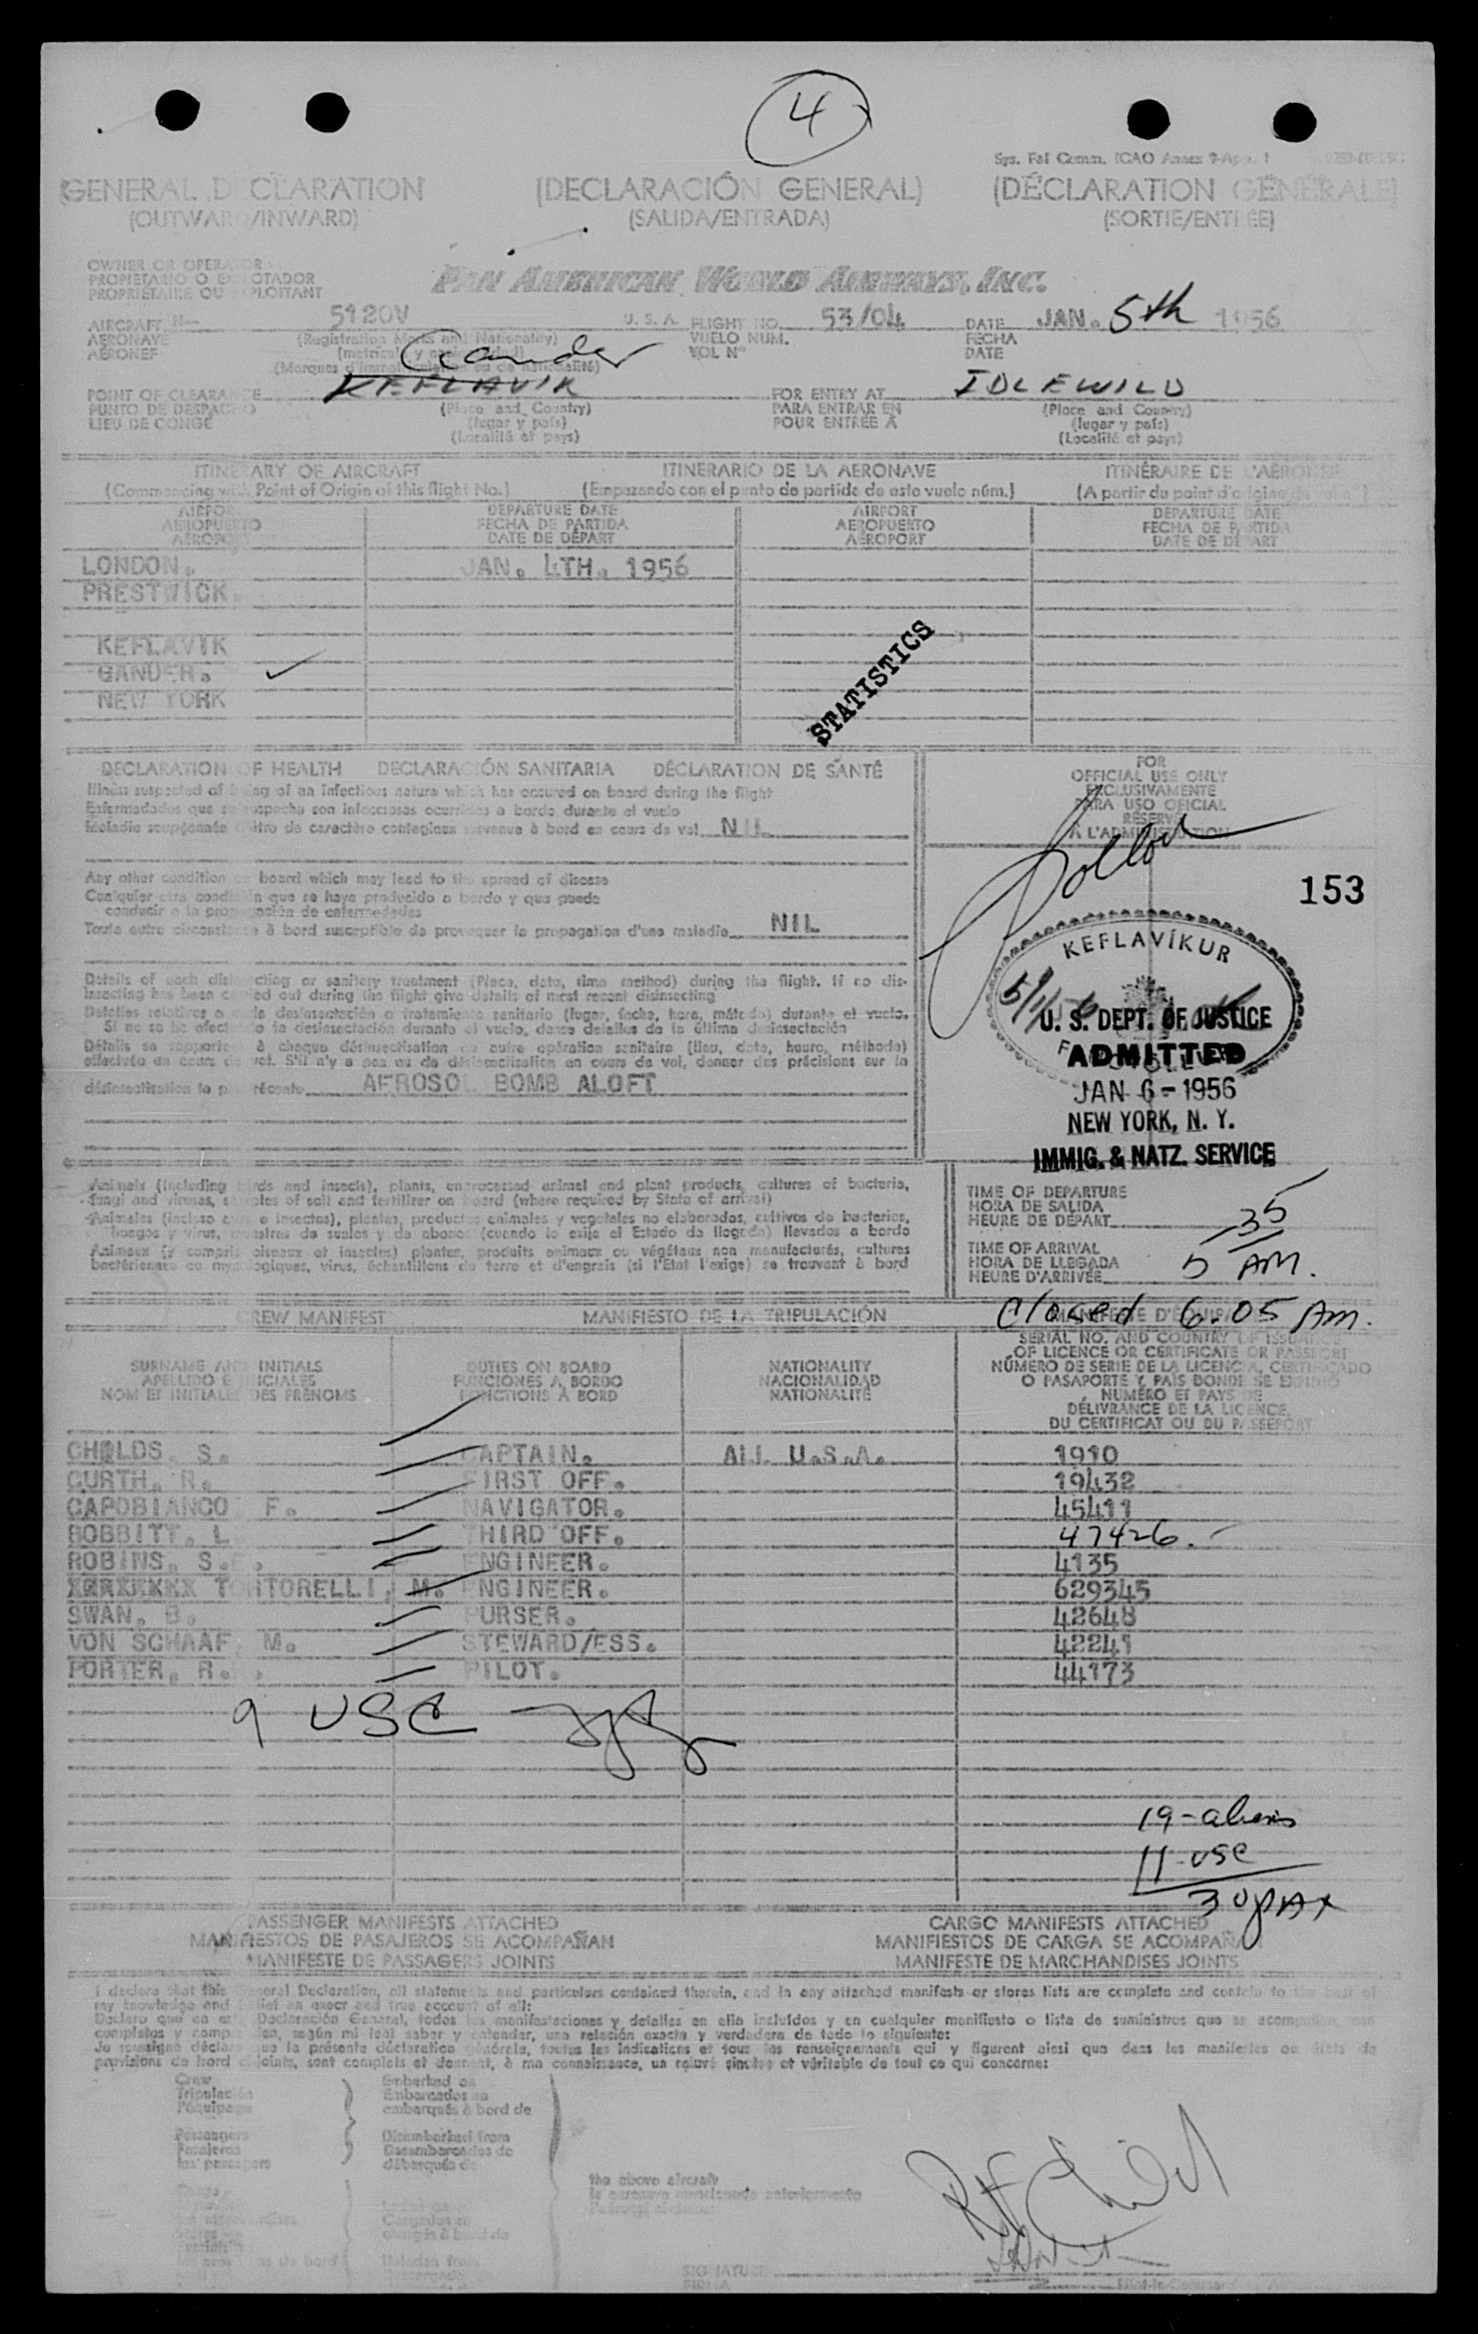 4
Sys. Fal Comm. ICAO Annex 9-App. 1
GENERAL DECLARATION (DECLARACIÓN GENERAL) (DÉCLARATION GÉNÉRALE)
(OUTWARD/INWARD) (SALIDA/ENTRADA) (SORTIE/ENTRÉE)
OWNER OR OPERATOR
PROPIETARIO O EXPLOTADOR
PROPRIÉTAIRE OU EXPLOITANT
PAN AMERICAN WORLD AIRWAYS, INC.
AIRCRAFT N— 5120V U. S. A. FLIGHT NO. 53/04 DATE JAN. 5th 1956
AERONAVE (Registration Marks and Nationality) VUELO NUM. FECHA
AÉRONEF VOL Nº DATE
Gander
POINT OF CLEARANCE KEFLAVIK FOR ENTRY AT IDLEWILD
PUNTO DE DESPACHO (Place and Country) PARA ENTRAR EN (Place and Country)
LIEU DE CONGÉ (lugar y país) POUR ENTRÉE À (lugar y país)
(Localité et pays) (Localité et pays)
ITINERARY OF AIRCRAFT ITINERARIO DE LA AERONAVE ITINÉRAIRE DE L'AÉRONEF
(Commencing with Point of Origin of this flight No.) (Empezando con el punto de partida de este vuelo núm.) (A partir du point d'origine
AIRPORT DEPARTURE DATE AIRPORT DEPARTURE DATE
AEROPUERTO FECHA DE PARTIDA AEROPUERTO FECHA DE PARTIDA
AÉROPORT DATE DE DÉPART AÉROPORT DATE DE DÉPART
LONDON. JAN. 4TH. 1956
PRESTWICK.
KEFLAVIK
GANDER.
NEW YORK
STATISTICS
DECLARATION OF HEALTH DECLARACIÓN SANITARIA DÉCLARATION DE SANTÉ
Illness suspected of being of an infectious nature which has occured on board during the flight
Enfermedades que se sospecha son infecciosas ocurridas a bordo durante el vuelo
Maladie soupçonnée d'être de caractère contagieux survenue à bord en cours de vol NIL
FOR
OFFICIAL USE ONLY
EXCLUSIVAMENTE
PARA USO OFICIAL
RÉSERVÉ
À L'ADMINISTRATION
153
Any other condition on board which may lead to the spread of disease
Cualquier otra condición que se haya producido a bordo y que puede
conducir a la propagación de enfermedades
Toute autre circonstance à bord susceptible de provoquer la propagation d'une maladie NIL
KEFLAVÍKUR
5/1/56
U. S. DEPT. OF JUSTICE
ADMITTED
JAN 6 - 1956
NEW YORK, N. Y.
IMMIG. & NATZ. SERVICE
Details of each disinsecting or sanitary treatment (Place, date, time method) during the flight. If no dis-
insecting has been carried out during the flight give details of most recent disinsecting
Detalles relativos a cada desinsectación o tratamiento sanitario (lugar, fecha, hora, método) durante el vuelo.
Si no se ha efectuado la desinsectación durante el vuelo, dense detalles de la última desinsectación
Détails se rapportant à chaque désinsectisation ou autre opération sanitaire (lieu, date, heure, méthode)
effectuée en cours de vol. S'il n'y a pas eu de désinsectisation en cours de vol, donner des précisions sur la
désinsectisation la plus récente AEROSOL BOMB ALOFT
Animals (including birds and insects), plants, unprocessed animal and plant products, cultures of bacteria,
fungi and viruses, samples of soil and fertilizer on board (where required by State of arrival)
Animales (incluso aves e insectos), plantas, productos animales y vegetales no elaborados, cultivos de bacterias,
hongos y virus, muestras de suelos y de abonos (cuando lo exija el Estado de llegada) llevados a bordo
Animaux (y compris oiseaux et insectes) plantes, produits animaux ou végétaux non manufacturés, cultures
bactériennes ou mycologiques, virus, échantillons de terre et d'engrais (si l'Etat l'exige) se trouvant à bord
TIME OF DEPARTURE
HORA DE SALIDA
HEURE DE DÉPART
TIME OF ARRIVAL
HORA DE LLEGADA
HEURE D'ARRIVÉE 5 35 AM.
Closed 6.05 Am.
CREW MANIFEST MANIFIESTO DE LA TRIPULACIÓN
SURNAME AND INITIALS DUTIES ON BOARD NATIONALITY SERIAL NO. AND COUNTRY OF ISSUANCE
APELLIDO E INICIALES FUNCIONES A BORDO NACIONALIDAD OF LICENCE OR CERTIFICATE OR PASSPORT
NOM ET INITIALES DES PRÉNOMS FONCTIONS À BORD NATIONALITÉ NÚMERO DE SERIE DE LA LICENCIA, CERTIFICADO
O PASAPORTE Y PAÍS DONDE SE EXPIDIÓ
NUMÉRO ET PAYS DE
DÉLIVRANCE DE LA LICENCE,
DU CERTIFICAT OU DU PASSEPORT
CHILDS. S. CAPTAIN. All U.S.A. 1910
CURTH. R. FIRST OFF. 19432
CAPOBIANCO F. NAVIGATOR. 45411
BOBBITT. L THIRD OFF. 47426.
ROBINS. S. ENGINEER. 4135
TORTORELLI, M. ENGINEER. 629345
SWAN. B. PURSER. 42648
VON SCHAAF M. STEWARD/ESS. 42241
PORTER. R. PILOT. 44173
9 USC
19 - aliens
11 - USC
30 PAX
PASSENGER MANIFESTS ATTACHED CARGO MANIFESTS ATTACHED
MANIFIESTOS DE PASAJEROS SE ACOMPAÑAN MANIFIESTOS DE CARGA SE ACOMPAÑAN
MANIFESTE DE PASSAGERS JOINTS MANIFESTE DE MARCHANDISES JOINTS
I declare that this General Declaration, all statements and particulars contained therein, and in any attached manifests or stores lists are complete and contain to the best of
my knowledge and belief an exact and true account of all:
Declaro que en esta Declaración General, todos las manifestaciones y detalles en ella incluídos y en cualquier manifiesto o lista de suministros que se acompañan, son
completos y comprenden, según mi leal saber y entender, una relación exacta y verdadera de todo lo siguiente:
Je soussigné déclare que la présente déclaration générale, toutes les indications et tous les renseignements qui y figurent ainsi que dans les manifestes ou états de
provisions de bord ci-joints, sont complets et donnent, à ma connaissance, un relevé sincère et véritable de tout ce qui concerne:
Crew Embarked on
Tripulación Embarcados en
l'équipage embarqués à bord de
Passengers Disembarked from
Pasajeros Desembarcados de
les passagers débarqués de
the above aircraft
SIGNATURE
FIRMA